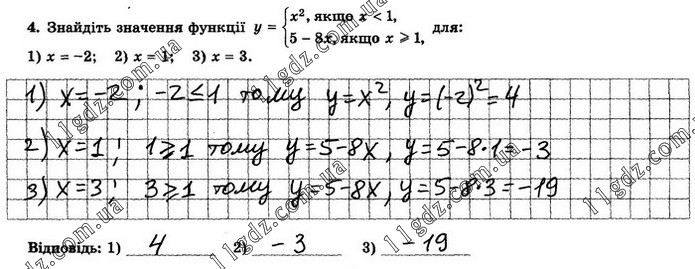 4. Знайдіть значення функції y = { x², якщо x < 1,
5 – 8x, якщо x ⩾ 1, для:
1) x = –2; 2) x = 1; 3) x = 3.
1) x = –2 ; –2 ≤ 1 тому y = x², y = (–2)² = 4
2) x = 1 ; 1 ⩾ 1 тому y = 5–8x, y = 5–8·1 = –3
3) x = 3 ; 3 ⩾ 1 тому y = 5–8x, y = 5–8·3 = –19
Відповідь: 1) 4 2) –3 3) –19
11gdz.com.ua